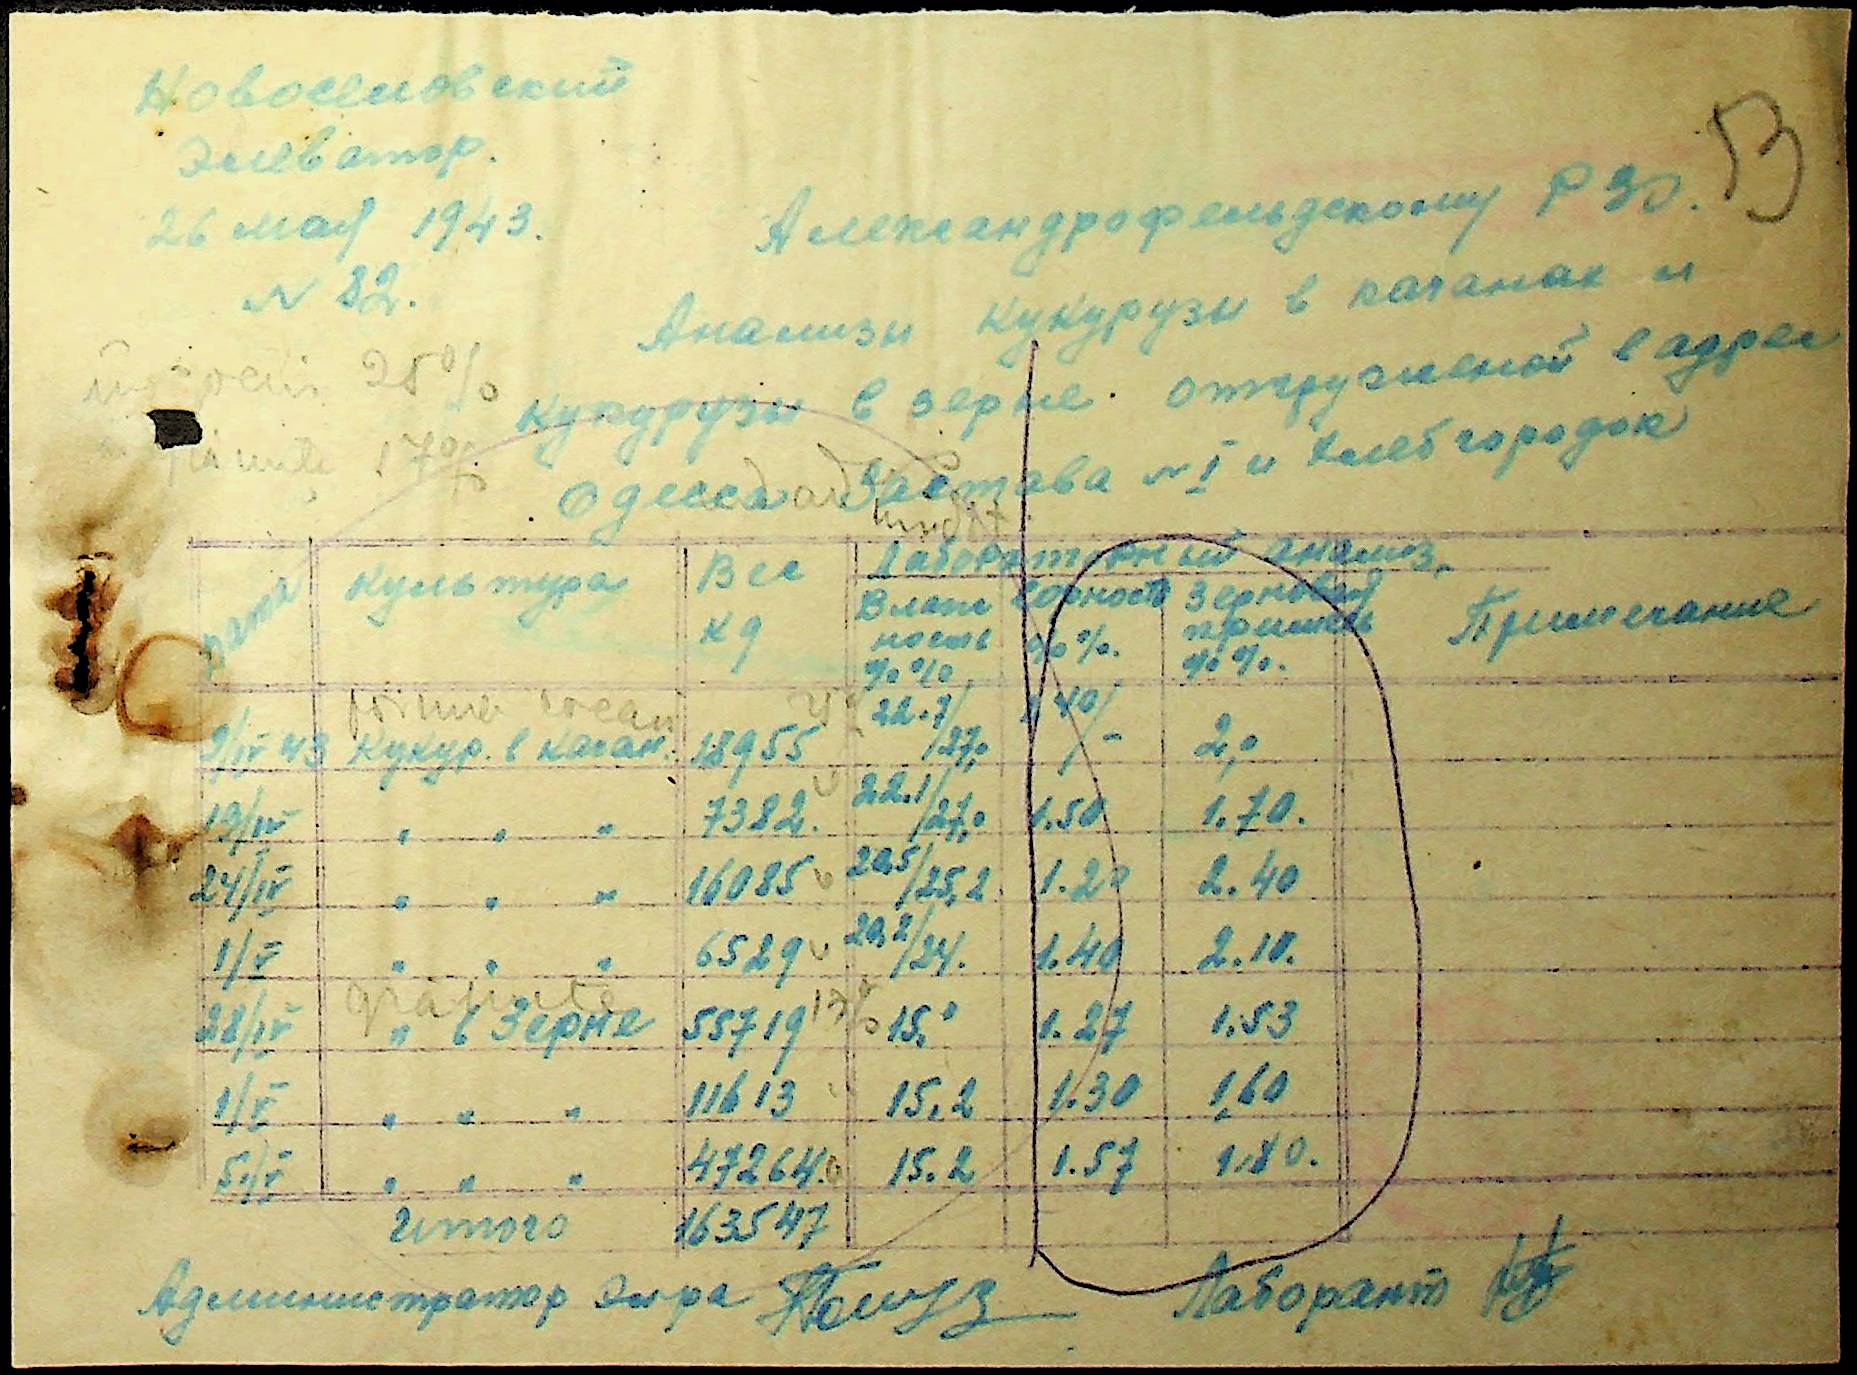 Новоселовский
Элеватор.
26 мая 1943.
N 82.
53
Александрофельдскому РЗО.
Анализы кукурузы в качанах и
кукурузы в зерне. отгруженой в адрес
Одесса Застава N I и Хлебгородок
25%
grăunte 17%
Дата
Культура
Вес
кg
Лабораторный анализ.
Влаж
ность
%%
Сорность
%%.
Зерновая
примесь
%%.
Примечание
9/IV 43 Кукур. в качан. 18955 22.7/27,0 1 40/- 2,0
19/IV " " " 7382. 22.1/27,0 1.50 1.70.
24/IV " " " 16085 20,5/25,2 1.20 2.40
1/V " " " 6529 20,2/24. 1.40 2.10.
grăunte 17%
28/IV " в Зерне 55719 15,0 1.27 1.53
1/V " " " 11613 15,2 1.30 1,60
5/V " " " 47264. 15.2 1.57 1.80.
Итого 163547
Администратор Эл-ра
Лаборант